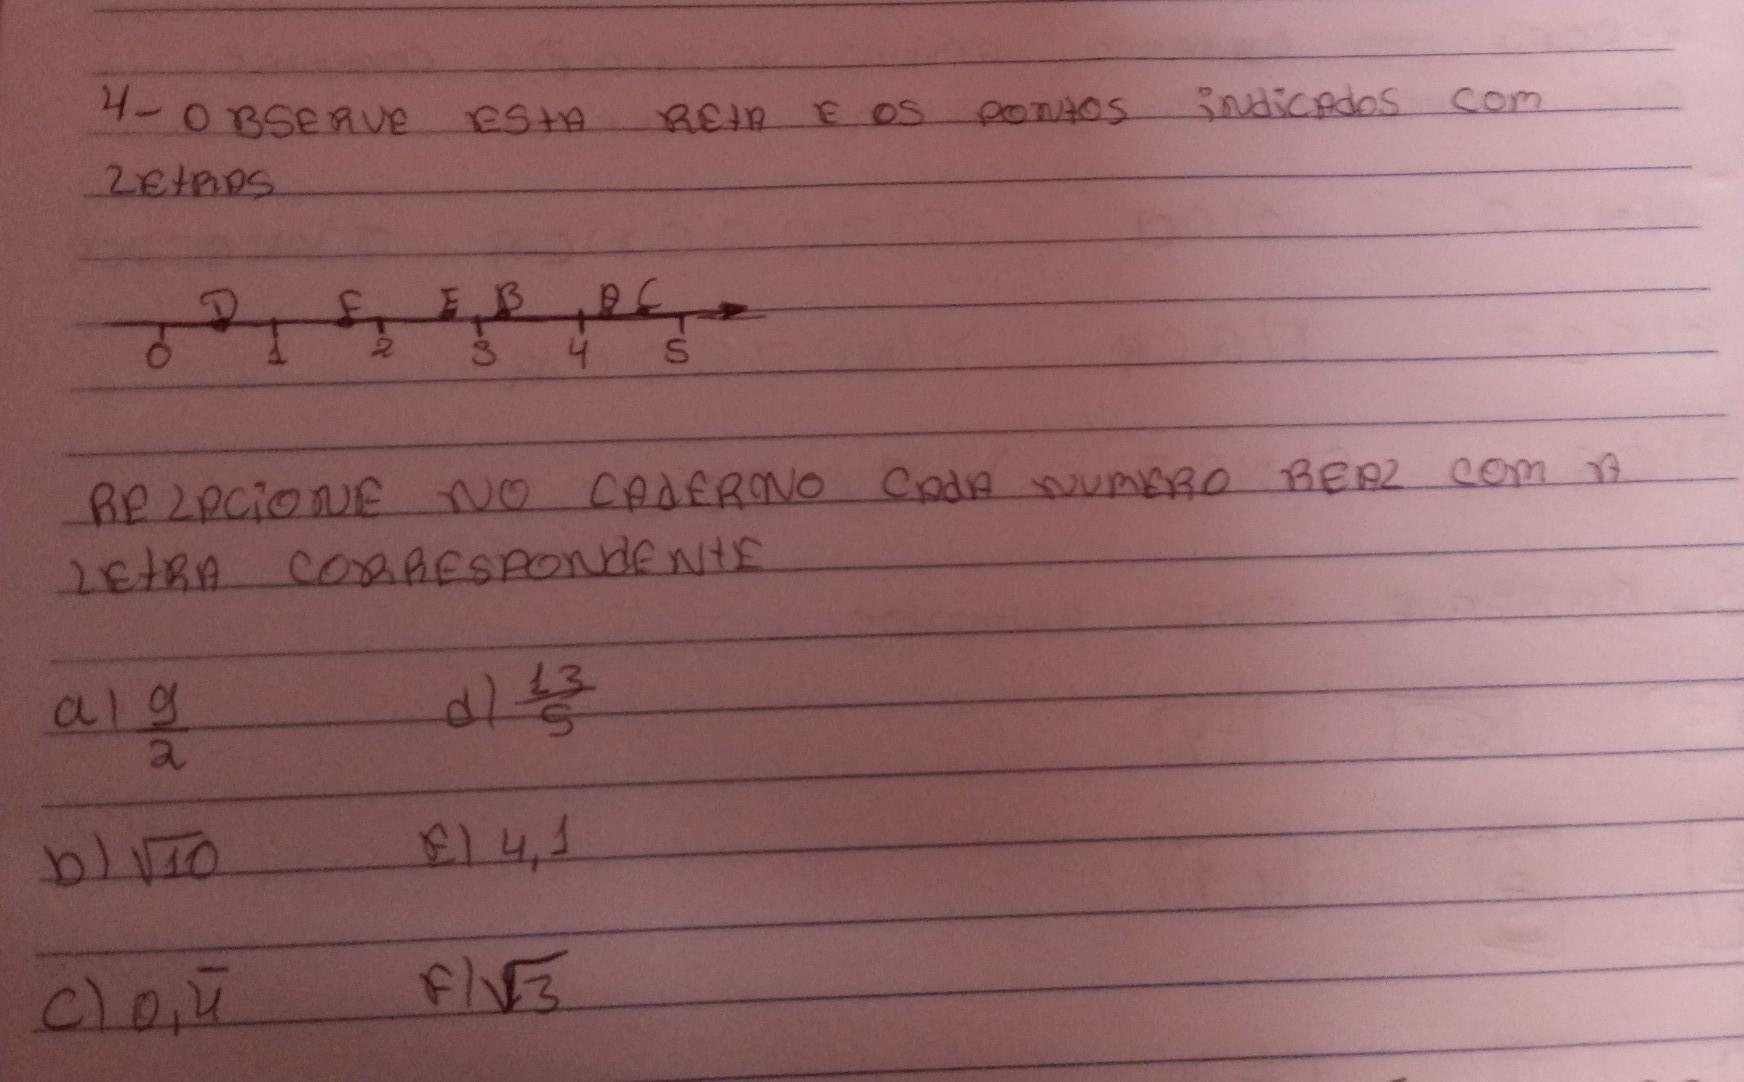 4- OBSERVE ESTA RETA E OS PONTOS indicados com
LETRAS
D F E B A C
0 1 2 3 4 5
RELACiONE NO CADERNO CADA NUMERO REAL com A
LETRA CORRESPONDENTE
a) 9/2 d) 13/5
b) √10 E) 4,1
c) 0,4̅ F) √3